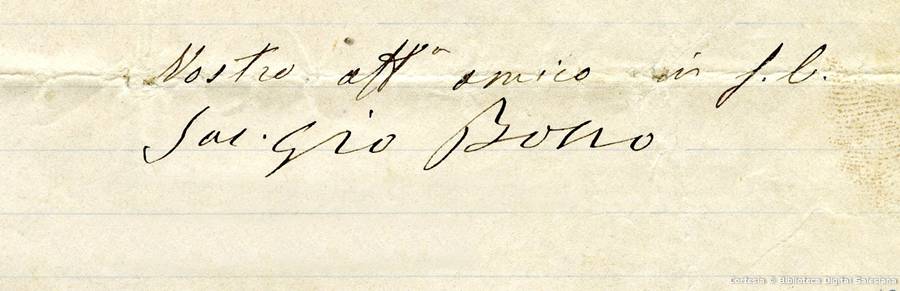 Vostro aff.º amico in G. C.
Sac. Gio Bosco
Cortesía © Biblioteca Digital Salesiana